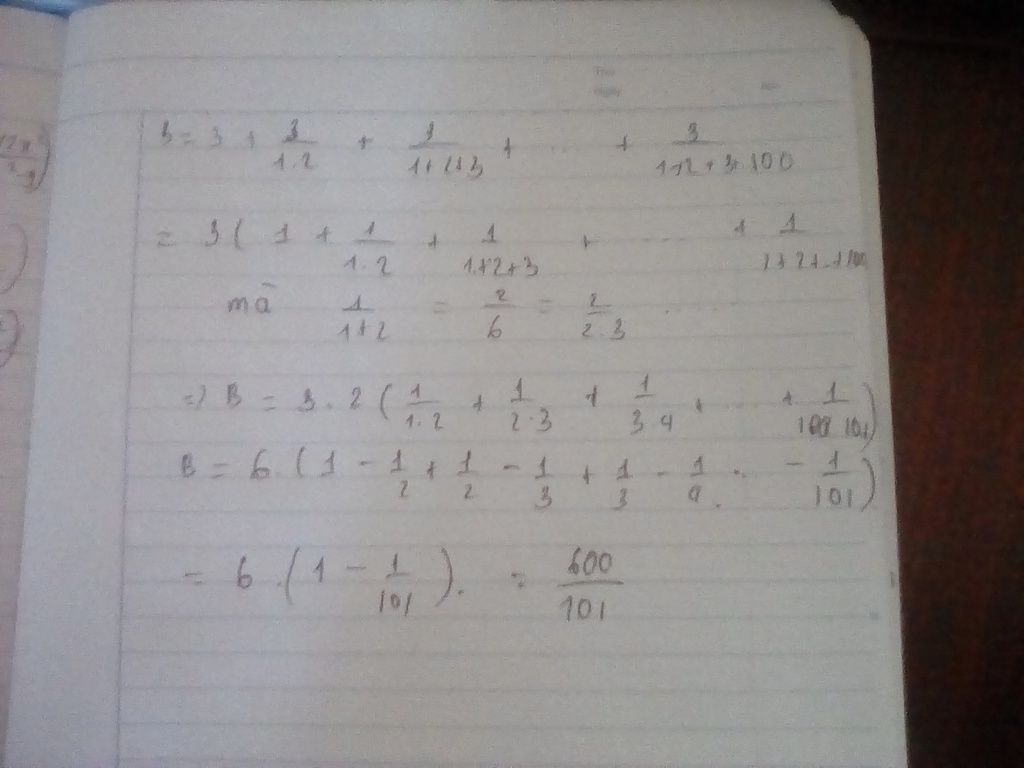 B = 3 + 3/(1.2) + 3/(1+2+3) + ... + 3/(1+2+3+.100)
= 3 ( 1 + 1/(1.2) + 1/(1+2+3) + ...... + 1/(1+2+..+100)
mà 1/(1+2) = 2/6 = 2/(2.3) ....
=> B = 3 . 2 ( 1/(1.2) + 1/(2.3) + 1/(3.4) + ... + 1/(100.101) )
B = 6 . ( 1 - 1/2 + 1/2 - 1/3 + 1/3 - 1/4 . .. - 1/101 )
= 6 . ( 1 - 1/101 ) . = 600/101